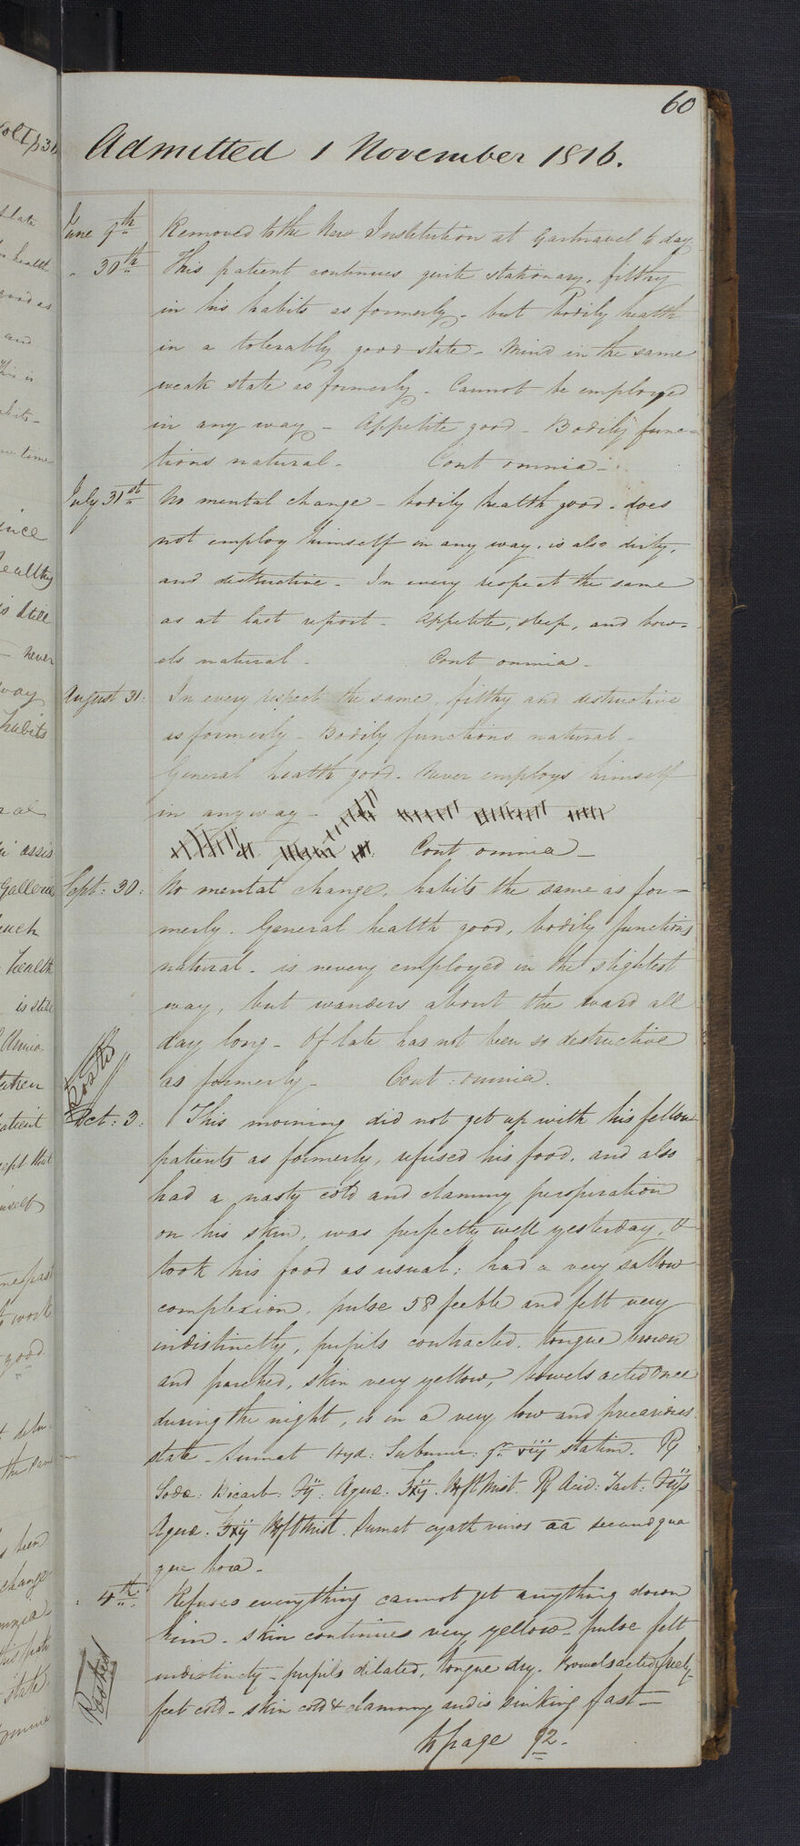 60
Admitted 1 November 1816.
June 9th Removed to the New Institution at Gartnavel to day
" 30th This patient continues quite stationary, filthy
in his habits as formerly - but bodily health
in a tolerably good state - Mind in the same
weak state as formerly - Cannot be employed
in any way - Appetite good - Bodily func-
tions natural - Cont omnia -
July 31st No mental change - bodily health good - does
not employ himself in any way, is also dirty,
and destructive - In every respect the same
as at last report - Appetite, sleep, and bow-
els natural - Cont omnia -
August 31: In every respect the same, filthy and destructive
as formerly - Bodily functions natural -
General health good - Never employs himself
in any way -
Cont omnia -
Sept: 30: No mental change, habits the same as for-
merly. General health good, bodily functions
natural - is nevery employed in the slightest
way, but wanders about the ward all
day long - Of late has not been so destructive
as formerly - Cont: omnia.
Oct: 3: This morning did not get up with his fellow
patients as formerly, refused his food, and also
had a nasty cold and clammy perspiration
on his skin, was perfectly well yesterday, &
took his food as usual; had a very sallow
complexion, pulse 58 feeble and felt very
indistinctly, pupils contracted, tongue brown
and parched, skin very yellow, bowels acted once
during the night, is in a very low and precarious
state - Sumat Hyd: Submur: gr viij statim. ℞
Sodæ: Bicarb. ʒij. Aquæ. ℥xij. Mft Mist. ℞ Acid: Tart.
Aquæ. ℥xij Mft Mist. Sumat cyath vinos aa secund qua
que hora -
" 4th: Refuses everything cannot get anything down
him - skin continues very yellow - pulse felt
indistinctly - pupils dilated, tongue dry. Bowels acted freely -
feet cold - skin cold & clammy and is sinking fast -
Posted
to page 92 -